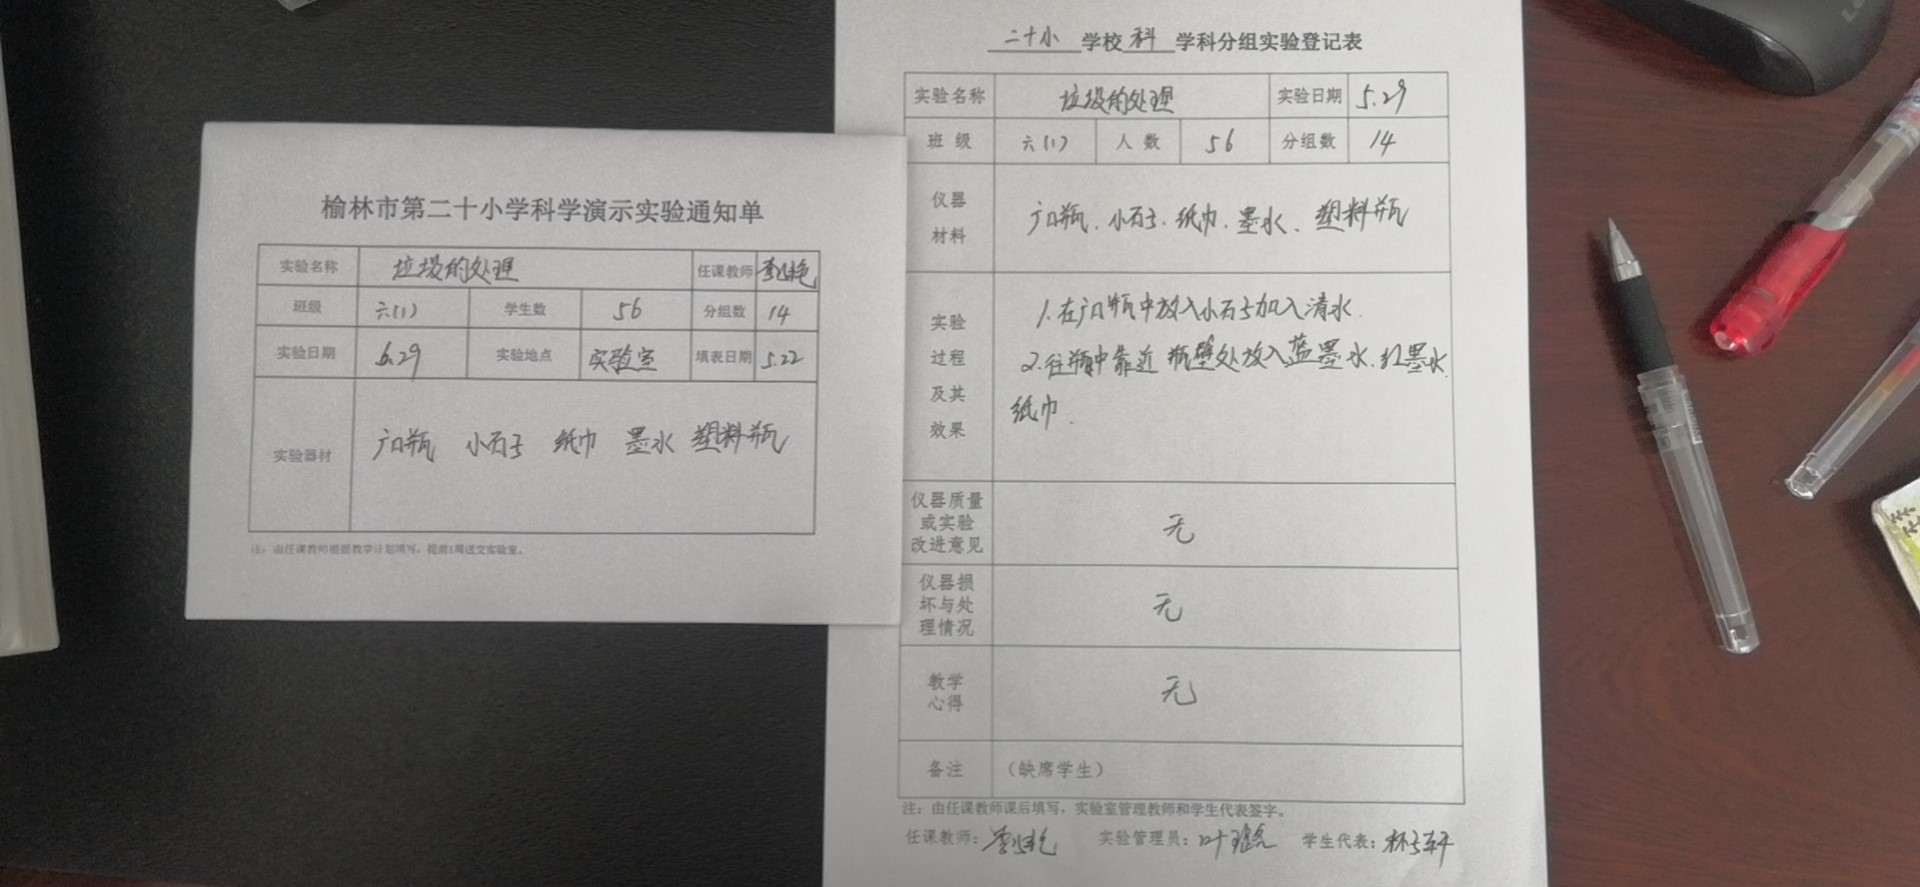 榆林市第二十小学科学演示实验通知单
实验名称 垃圾的处理 任课教师
班级 六(1) 学生数 56 分组数 14
实验日期 5.29 实验地点 实验室 填表日期 5.22
实验器材 广口瓶 小石子 纸巾 墨水 塑料瓶
注：由任课教师根据教学计划填写，提前1周送交实验室。
二十小 学校 科 学科分组实验登记表
实验名称 垃圾的处理 实验日期 5.29
班 级 六(1) 人 数 56 分组数 14
仪器
材料
广口瓶、小石子、纸巾、墨水、塑料瓶
实验
过程
及其
效果
1.在广口瓶中放入小石子加入清水.
2.往瓶中靠近瓶壁处放入蓝墨水、红墨水
纸巾.
仪器质量
或实验
改进意见
无
仪器损
坏与处
理情况
无
教学
心得
无
备注 （缺席学生）
注：由任课教师课后填写，实验室管理教师和学生代表签字。
任课教师： 实验管理员： 学生代表：